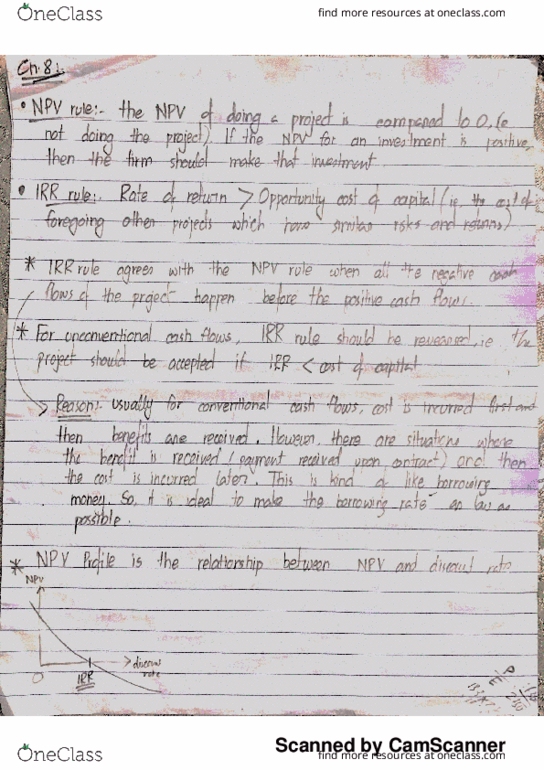 OneClass
find more resources at oneclass.com
Ch.8:
• NPV rule:- the NPV of doing a project is compared to 0, (ie
not doing the project). If the NPV for an investment is positive,
then the firm should make that investment.
• IRR rule:- Rate of return > Opportunity cost of capital (ie, the cost of
foregoing other projects which have similar risks and returns)
* IRR rule agrees with the NPV rule when all the negative cash
flows of the project happen before the positive cash flows.
* For unconventional cash flows, IRR rule should be reversed, ie the
project should be accepted if IRR < cost of capital
Reason:- usually for conventional cash flows, cost is incurred first and
then benefits are received. However, there are situations where
the benefit is received (payment received upon contract) and then
the cost is incurred later. This is kind of like borrowing
money. So, it is ideal to make the borrowing rate as low as
possible.
* NPV Profile is the relationship between NPV and discount rate
NPV
0
IRR
> discount
rate
OneClass
Scanned by CamScanner
find more resources at oneclass.com